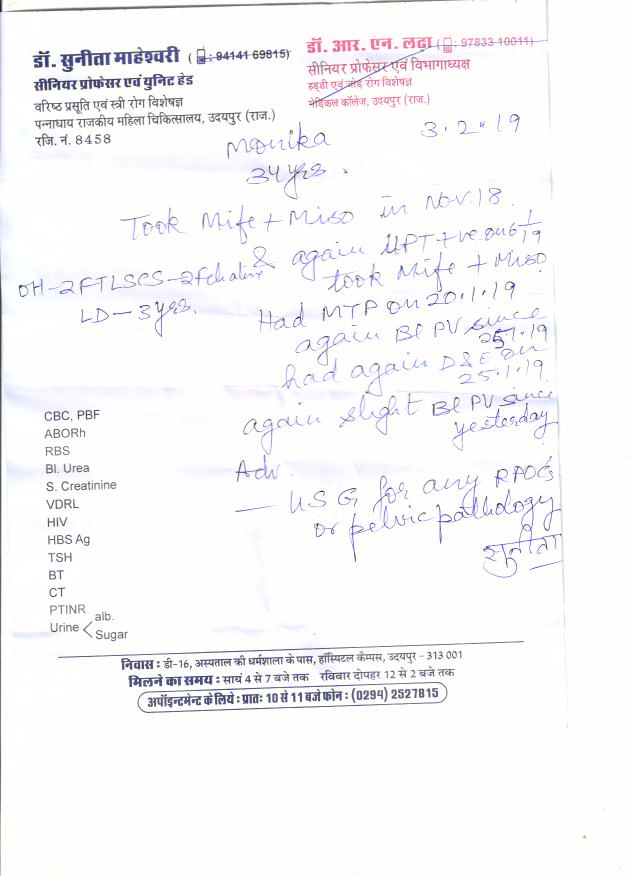 डॉ. सुनीता माहेश्वरी ( : 94141 69815)
सीनियर प्रोफेसर एवं यूनिट हेड
वरिष्ठ प्रसूति एवं स्त्री रोग विशेषज्ञ
पन्नाधाय राजकीय महिला चिकित्सालय, उदयपुर (राज.)
रजि. नं. 8458
डॉ. आर. एन. लढ़ा ( : 97833 10011)
सीनियर प्रोफेसर एवं विभागाध्यक्ष
हड्डी एवं जोड़ रोग विशेषज्ञ
मेडिकल कॉलेज, उदयपुर (राज.)
3.2.19
Monika
34 yrs.
Took Mife + Miso in Nov.18.
& again UPT +ve on 6/1/19
took Mife + Miso
OH - 2FTLSCS - 2F
LD - 3 yrs.
Had MTP on 20.1.19
again Bl PV since
25.1.19
had again D&E on
25.1.19.
again slight Bl PV since
yesterday
Adv.
— USG for any RPOC's
or pelvic pathology
सुनीता
CBC, PBF
ABORh
RBS
Bl. Urea
S. Creatinine
VDRL
HIV
HBS Ag
TSH
BT
CT
PTINR
Urine < alb.
Sugar
निवास : डी-16, अस्पताल की धर्मशाला के पास, हॉस्पिटल कैम्पस, उदयपुर - 313 001
मिलने का समय : सायं 4 से 7 बजे तक रविवार दोपहर 12 से 2 बजे तक
अपॉइन्टमेन्ट के लिये : प्रातः 10 से 11 बजे फोन : (0294) 2527815